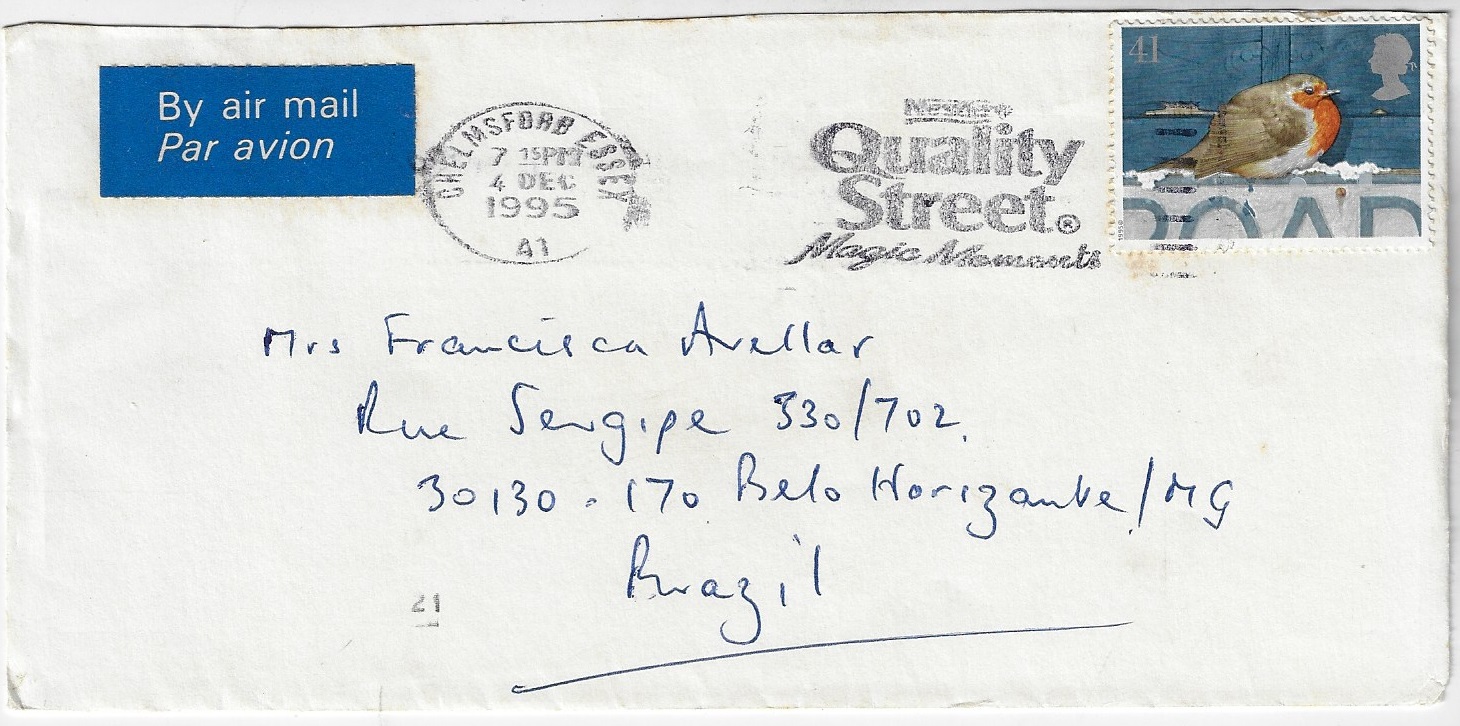 By air mail
Par avion
CHELMSFORD ESSEX
7 15PM
4 DEC
1995
A1
Quality
Street®
Magic Moments
41
ROAD
Mrs Francisca Avellar
Rua Sergipe 330/702
30130-170 Belo Horizonte/MG
Brazil
21